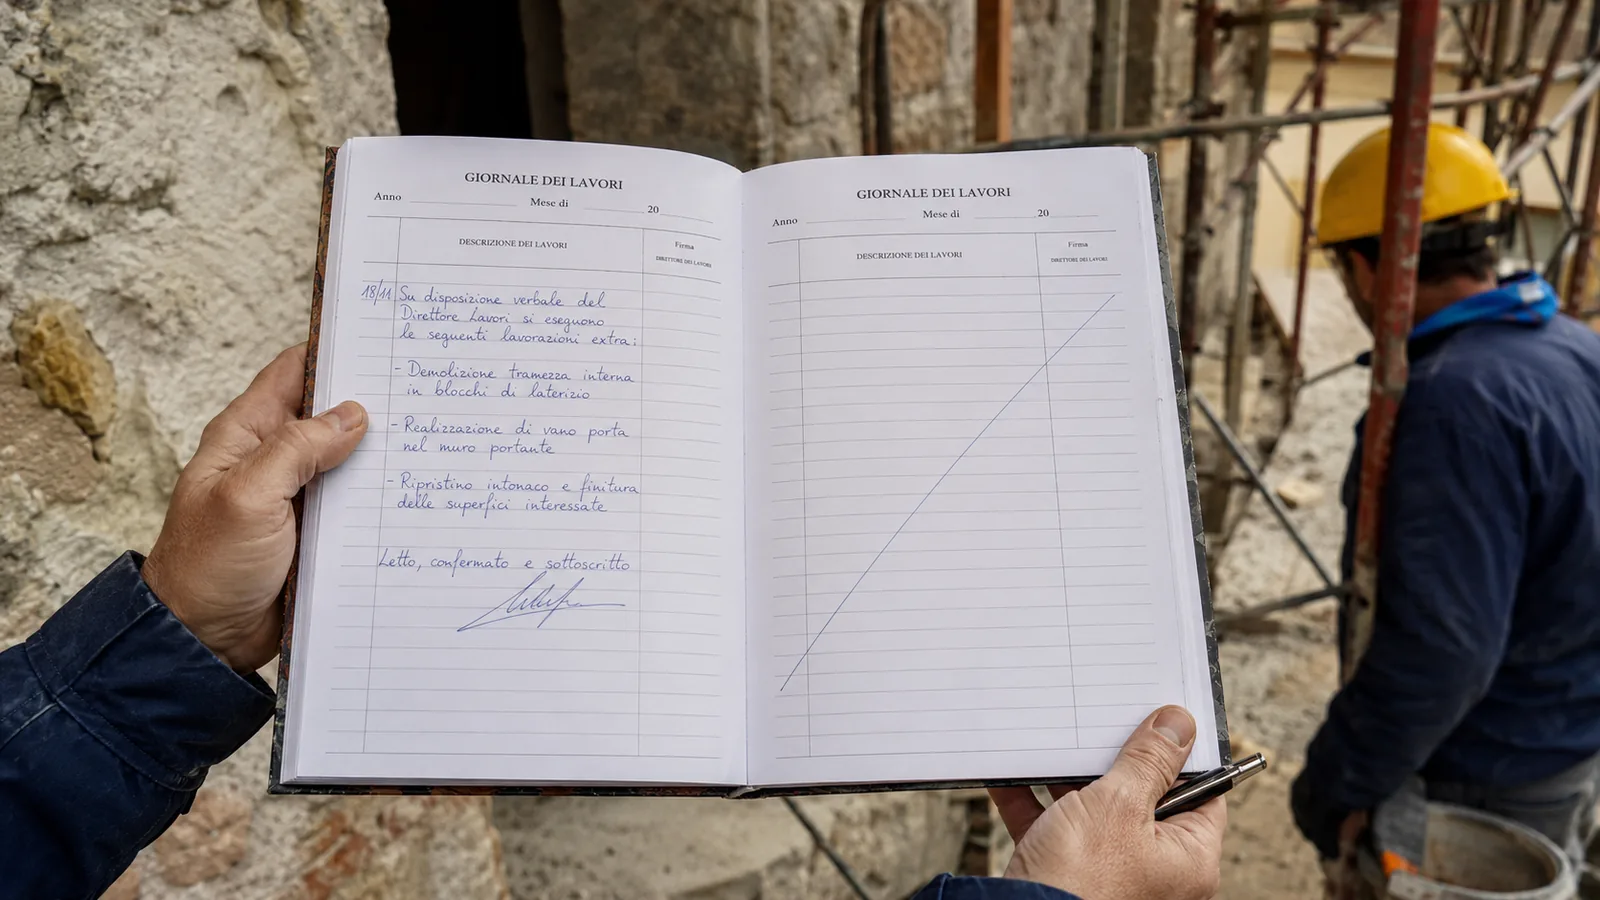 GIORNALE DEI LAVORI
Anno Mese di 20
DESCRIZIONE DEI LAVORI
Firma
DIRETTORE DEI LAVORI
18/11 Su disposizione verbale del
Direttore Lavori si eseguono
le seguenti lavorazioni extra:
- Demolizione tramezza interna
in blocchi di laterizio
- Realizzazione di vano porta
nel muro portante
- Ripristino intonaco e finitura
delle superfici interessate
Letto, confermato e sottoscritto
GIORNALE DEI LAVORI
Anno Mese di 20
DESCRIZIONE DEI LAVORI
Firma
DIRETTORE DEI LAVORI